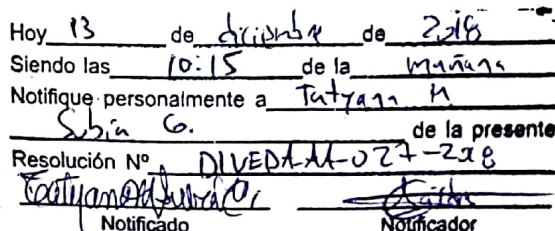 Hoy 13 de diciembre de 2018
Siendo las 10:15 de la mañana
Notifique personalmente a Tatyana M
Subía G. de la presente
Resolución Nº DIVEDA-AA-027-218
Notificado Notificador